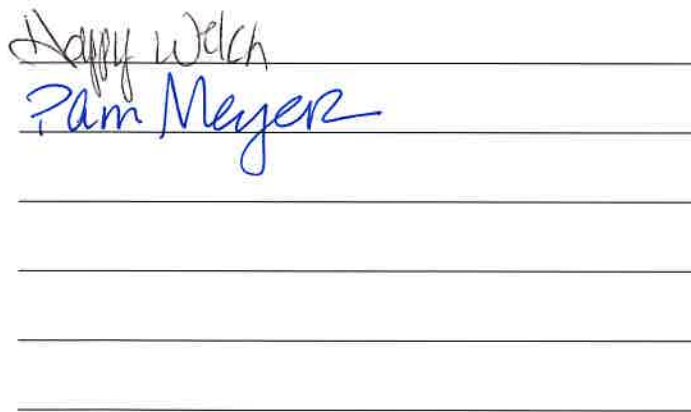 Happy Welch
Pam Meyer